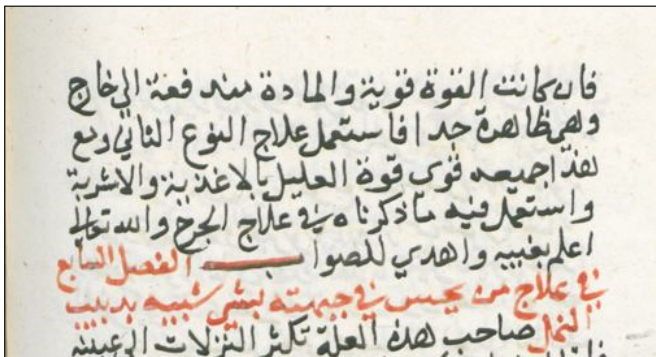 فان كانت القوة قوية والمادة مندفعة الى خارج
وهي ظاهرة جدا فاستعمل علاج النوع الثاني ومع
هذا جميعه فقوى قوة العليل بالاغذية والاشربة
واستعمل فيه ما ذكرناه في علاج الجرح والله تعالى
اعلم بغيبه واهدي للصواب الفصل السابع
في علاج من يحس في جبهته بشي شبيه بدبيب
النمل صاحب هذه العلة تكثر النزلات الى عينيه